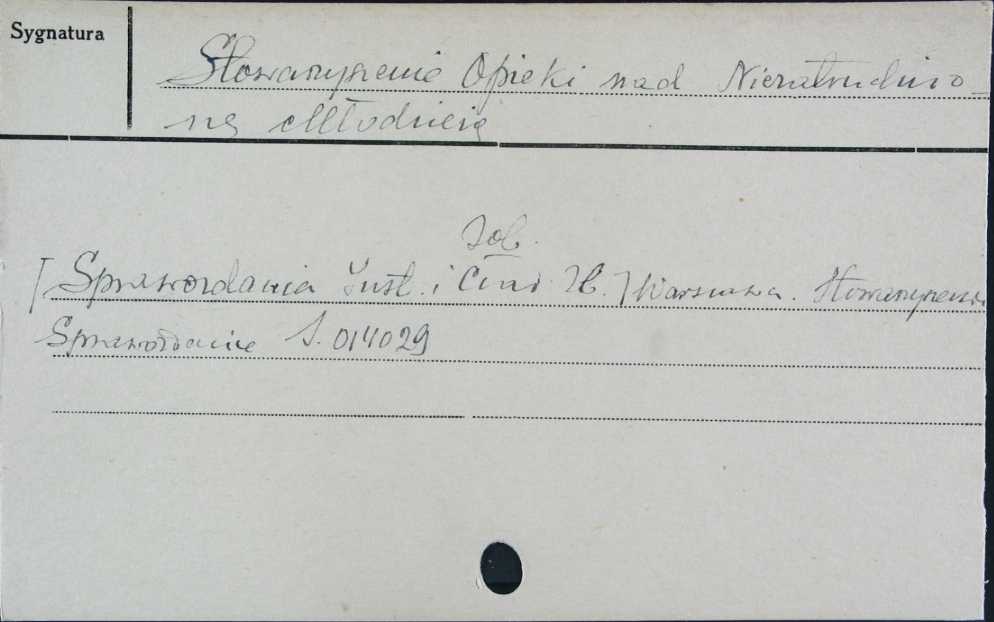 Sygnatura
Stowarzyszenie Opieki nad Niezatrudnio-
ną Młodzieżą
Zob.
[Sprawozdania Inst. i
Warszawa. Stowarzyszenie
Sprawozdanie S. 014029